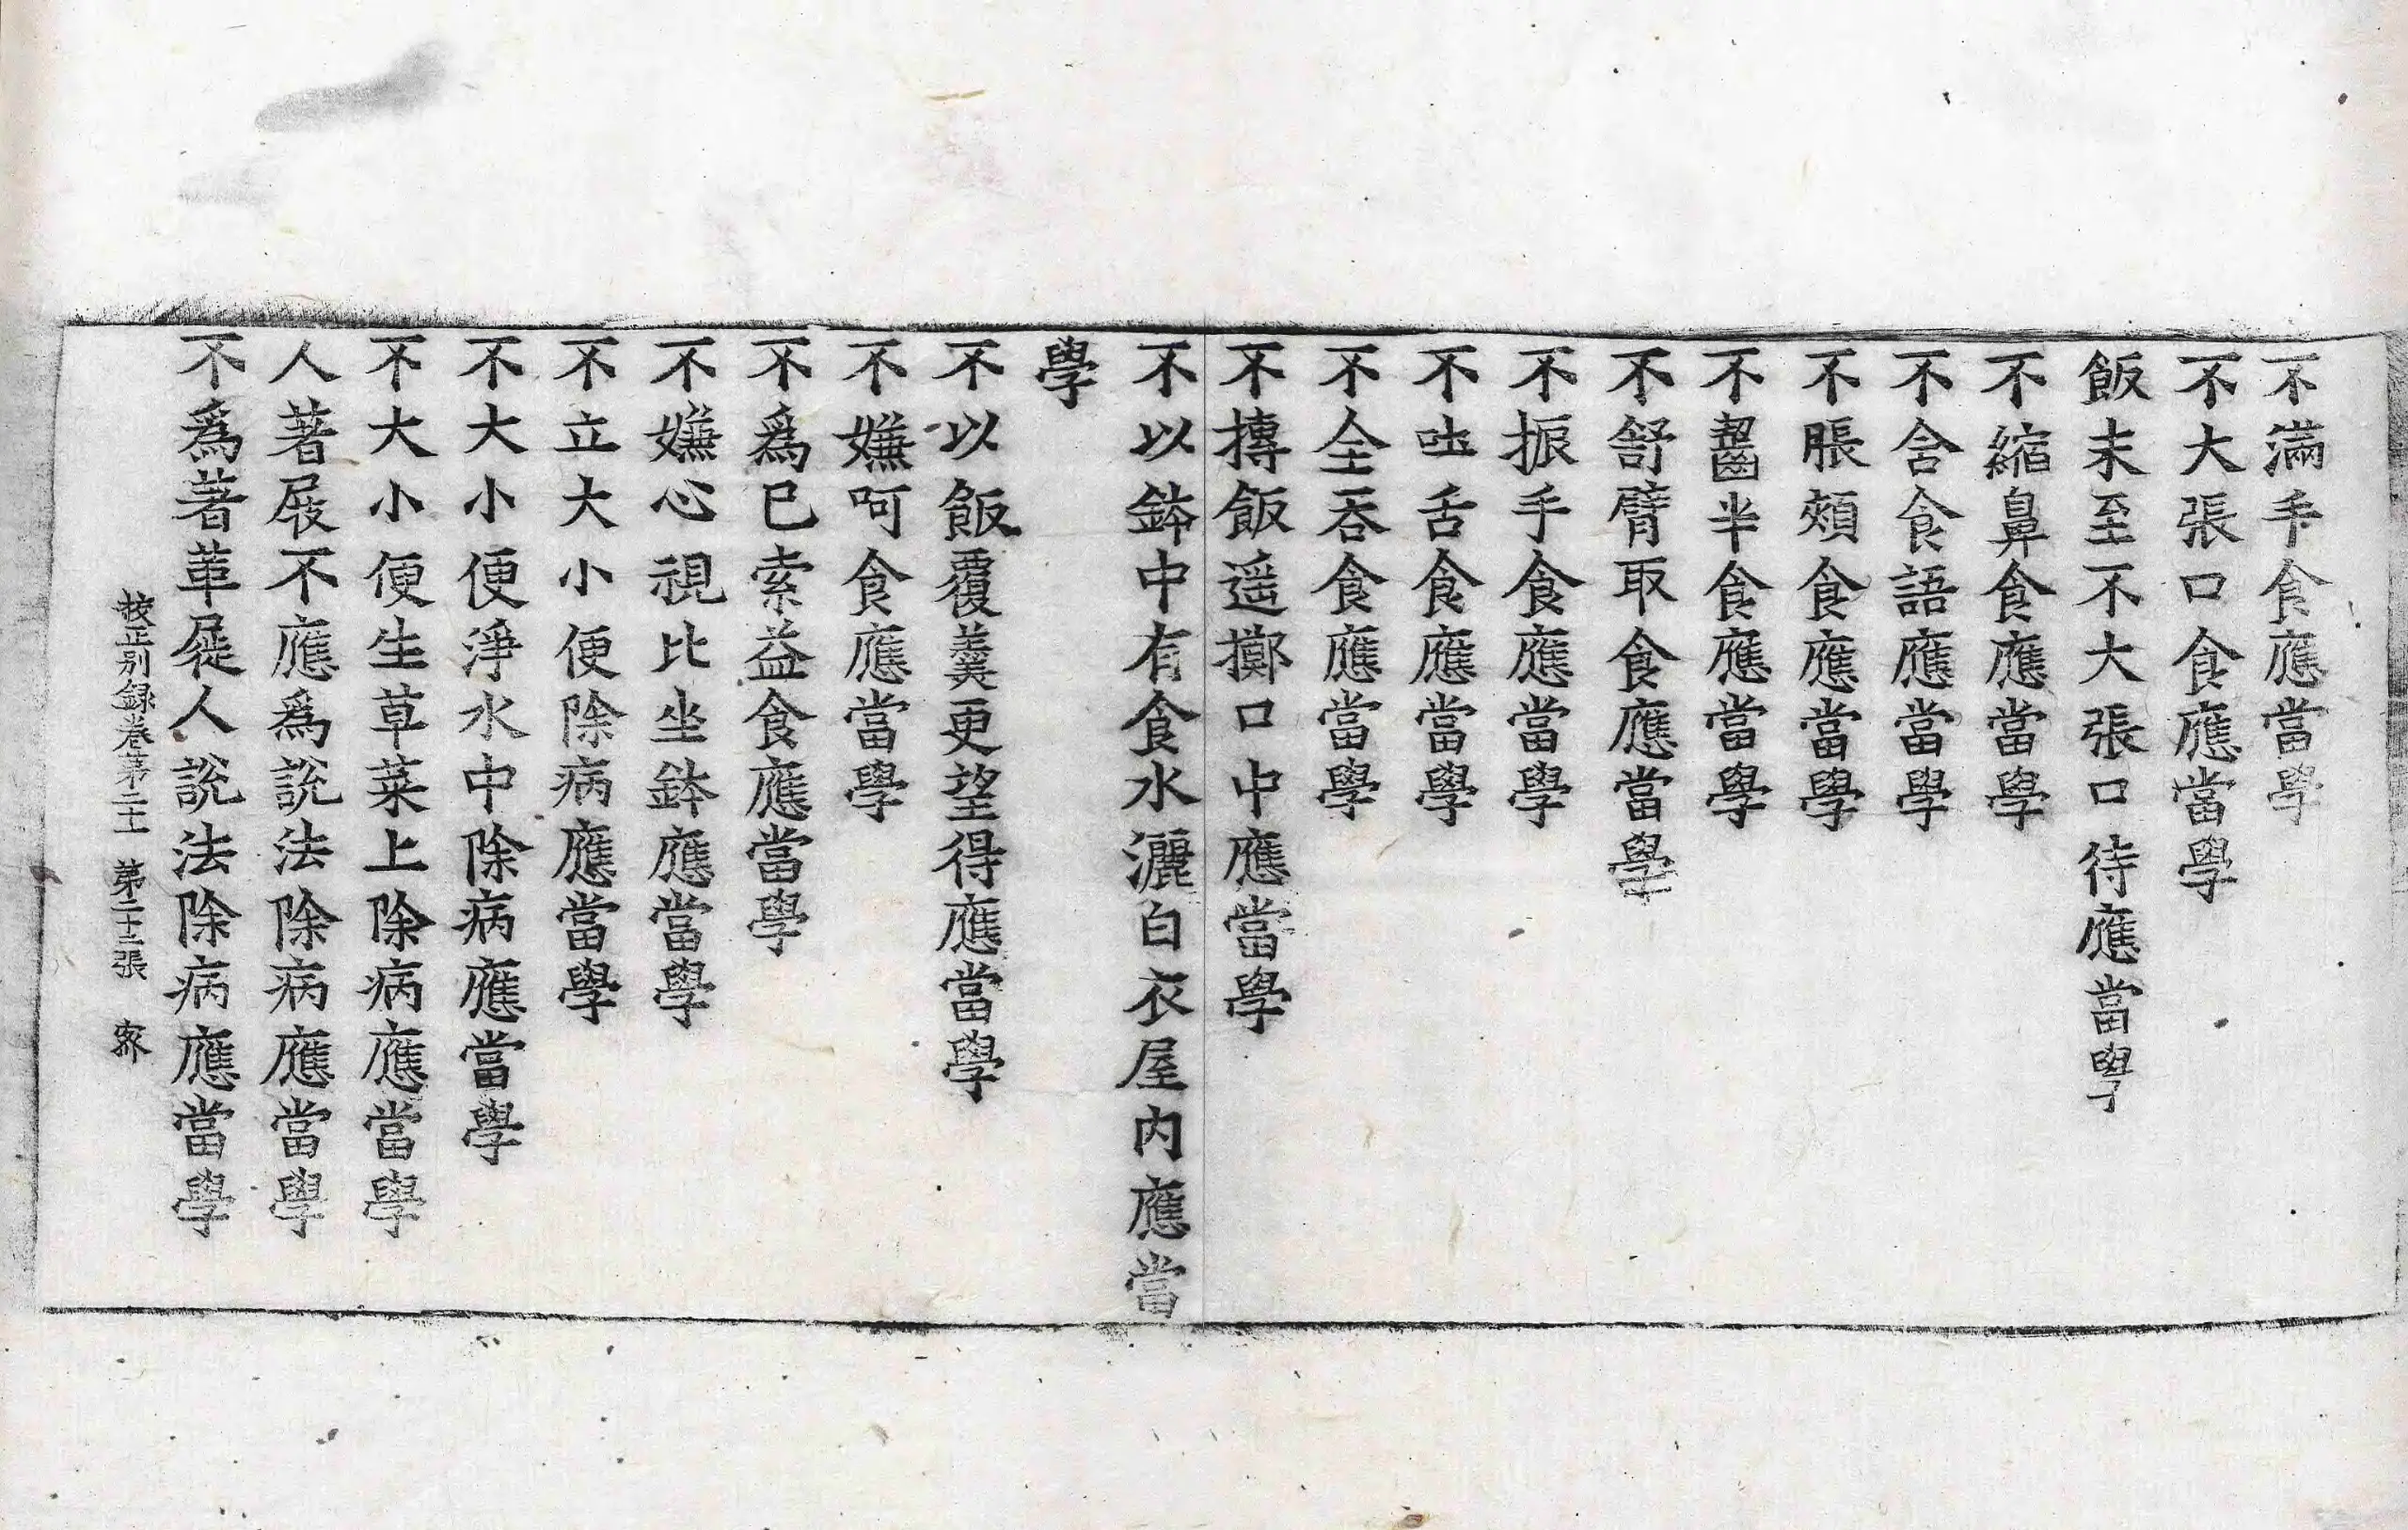 不滿手食應當學
不大張口食應當學
飯未至不大張口待應當學
不縮鼻食應當學
不含食語應當學
不脹頰食應當學
不齧半食應當學
不舒臂取食應當學
不振手食應當學
不吐舌食應當學
不全吞食應當學
不摶飯遥擲口中應當學
不以鉢中有食水灑白衣屋内應當
學
不以飯覆羹更望得應當學
不嫌呵食應當學
不爲已索益食應當學
不嫌心視比坐鉢應當學
不立大小便除病應當學
不大小便淨水中除病應當學
不大小便生草菜上除病應當學
人著屐不應爲說法除病應當學
不爲著革屣人說法除病應當學
校正别録卷第二十 第二十三張